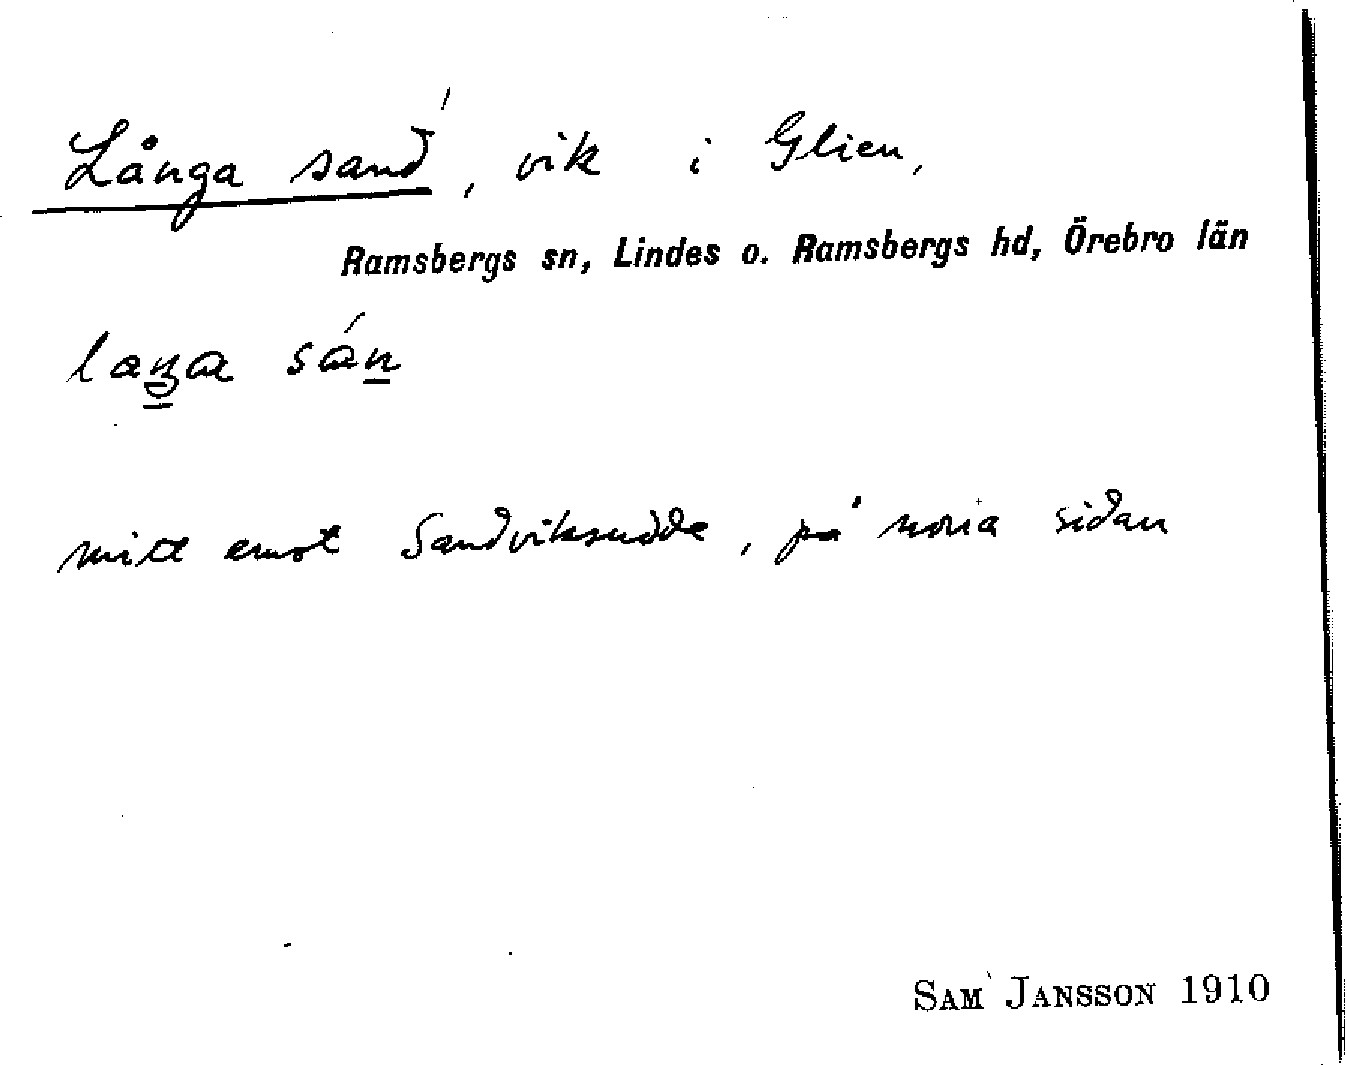 Långa sand, vik i Glien,
Ramsbergs sn, Lindes o. Ramsbergs hd, Örebro län
laŋa sán
mitt emot Sandviksudde, på norra sidan
SAM JANSSON 1910